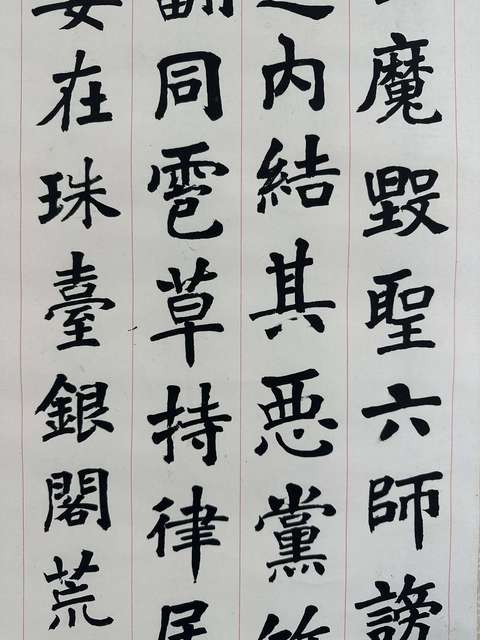 魔毀聖六師謗
內結其悪黨
同雹草持律
在珠臺銀閣荒